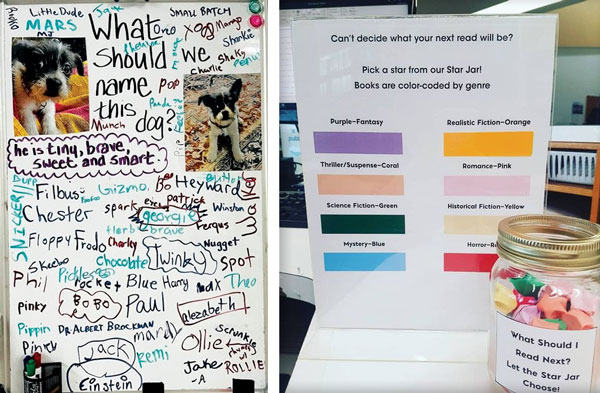 LITTLE DUDE
MARS
MJ
Jane
SMALL BATCH
What
should
we
name
this
dog?
Oreo
XOg
Mamp
Sharkie
Shaky
charlie
Pop
Panda
Munch
he is tiny, brave,
sweet. and smart.
Burp
SNICKER
Filbus
Gizmo,
Bo
Heyward
Chester
spark
patrick
georgie
Winston
Herb
brave
Fergus
Floppy
Frodo
Charley
Nugget
Skeebo
Chocolate
Twinky
spot
Phil
Pickles
Rocket
Blue
Harry
max
Theo
pinky
BoBo
Paul
elezabeth
Pippin
DR. ALBERT BROCKMAN
mardy
Ollie
Scrunkle
Pinky
JACK
Remi
Jake
-A
ROLLIE
Einstein
Can't decide what your next read will be?
Pick a star from our Star Jar!
Books are color-coded by genre
Purple–Fantasy
Realistic Fiction–Orange
Thriller/Suspense–Coral
Romance–Pink
Science Fiction–Green
Historical Fiction–Yellow
Mystery–Blue
Horror–Re
What Should I
Read Next?
Let the Star Jar
Choose!